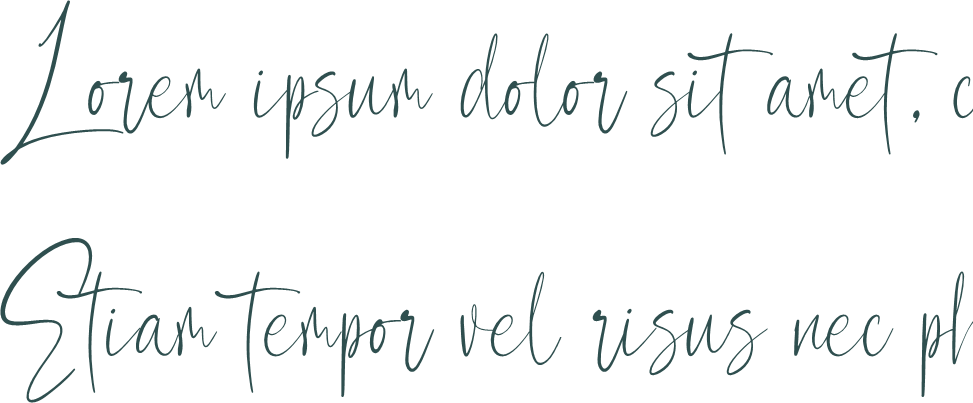 Lorem ipsum dolor sit amet, c
Etiam tempor vel risus nec ph